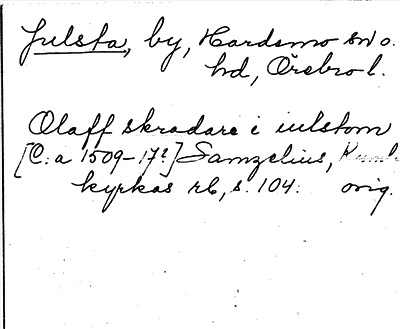 Julsta, by, Hardemo sn o.
hd, Örebro l.
Olaff skradare i iulstom
[C:a 1509-17?] Samzelius, Kumla
kyrkas rb, s. 104. orig.